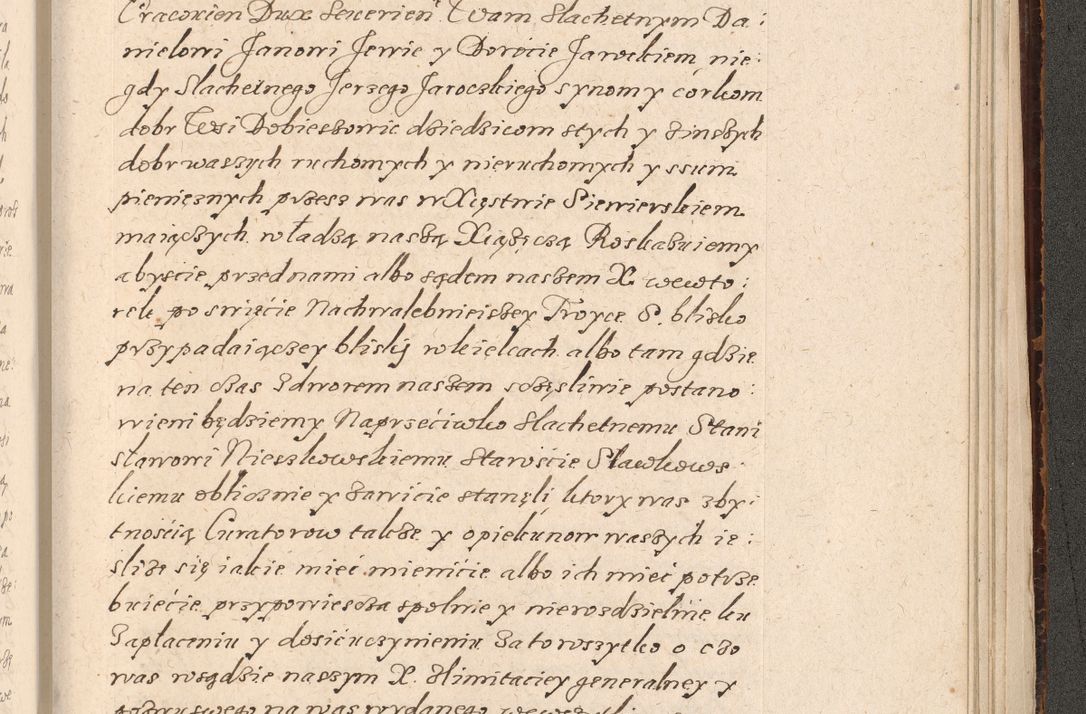 Cracovien Dux Severien. Wam Slachetnym Da:
nielowi Janowi Jerrie y Dorocie Jarockiem nie:
gdy Slachetnego Jerzego Jaroczkiego synom y corkom
dobr Wsi Dobieszowic dziedzicom stych y zinszych
dobr waszych ruchomych y nieruchomych y ssum
pienięznych przesz was w Xięstwie Siewierskiem
maiączych władzą naszą Xiążęczą Roskazuiemy
abyscie przed nami albo sądem naszem X. wewto:
rek po swięcie Nachwalebnieiszey Troyce S. blisko
przypadaiączey bliskj w kielcach albo tam gdzie
na ten czas z dworem naszem sczęsliwie postano:
wieni będziemy Naprzeciwko Slachetnemu Stani
sławowi Nieszkowskiemu Staroscie Sławkows:
kiemu oblicznie y zawicie stanęli ktory was zby:
tnoscią Curatorow takze y opiekunow waszych ie:
slize się iakie miec mienicie albo ich miec potrze
buiecie przypowiescza spolnie y nierozdzielnie ku
Zapłaceniu y dosicuczynieniu za to wszytko o czo
was wsądzie naszym X. Slimitaciey generalney y
pozwu swego na was wydanego